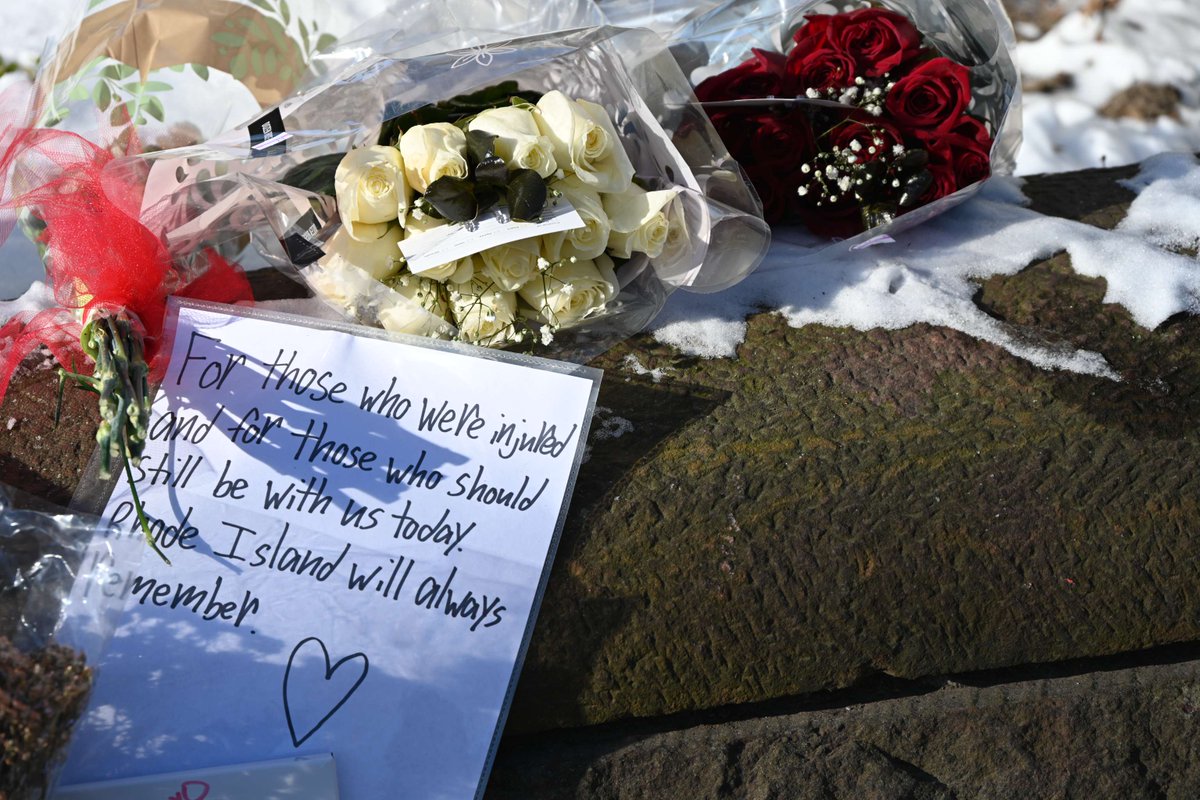 For those who were injured
and for those who should
still be with us today.
Rhode Island will always
remember.